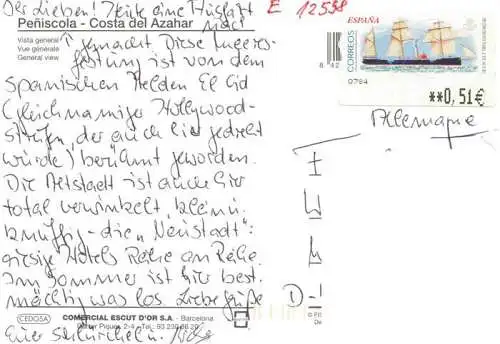 Ihr Lieben! Heute eine Ausfahrt
nach
Peñiscola - Costa del Azahar
Vista general
Vue générale
General view
gemacht. Diese Meeres-
festung ist von dem
spanischen Helden El Cid
(Gleichnamiger Hollywood-
streifen, der auch hier gedreht
wurde) berühmt geworden.
Die Altstadt ist auch hier
total verwinkelt, klein u.
knuffig - die "Neustadt":
riesige Hotels Reihe an Reihe.
Im Sommer ist hier best.
mächtig was los. Liebe Grüße
Euer
CEDOSA
COMERCIAL ESCUT D'OR S.A. - Barcelona
Piquer, 2-4 - Tel. 93 230 86 20
E 12538
ESPAÑA
CORREOS
0784
**0,51€
Allemagne
D-